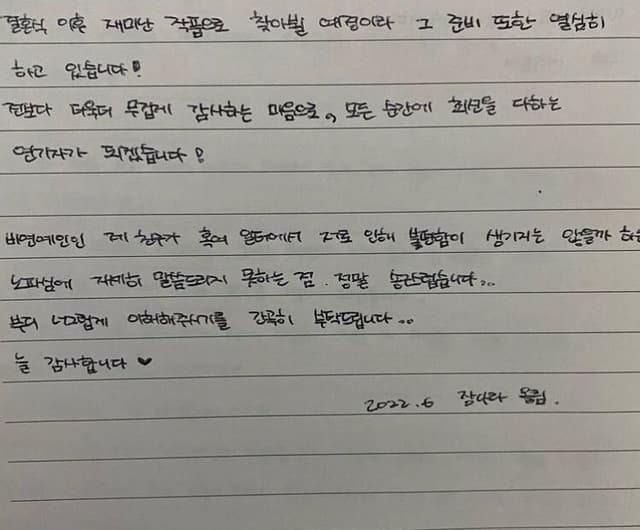 결혼식 이후 재미난 작품으로 찾아뵐 예정이라 그 준비 또한 열심히
하고 있습니다!
전보다 더욱더 무겁게 감사하는 마음으로, 모든 순간에 최선을 다하는
연기자가 되겠습니다!
비연예인인 제 친구가 혹여 일터에서 저로 인해 불편함이 생기지는 않을까 하는
노파심에 자세히 말씀드리지 못하는 점. 정말 송구스럽습니다...
부디 너그럽게 이해해주시기를 간곡히 부탁드립니다..
늘 감사합니다 ♥
2022.6 장나라 올림.